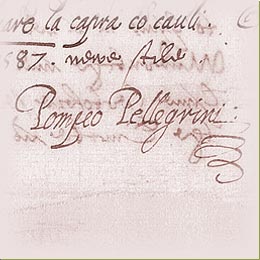 are la capra co cauli.
587. newe stile
Pompeo Pellegrini: